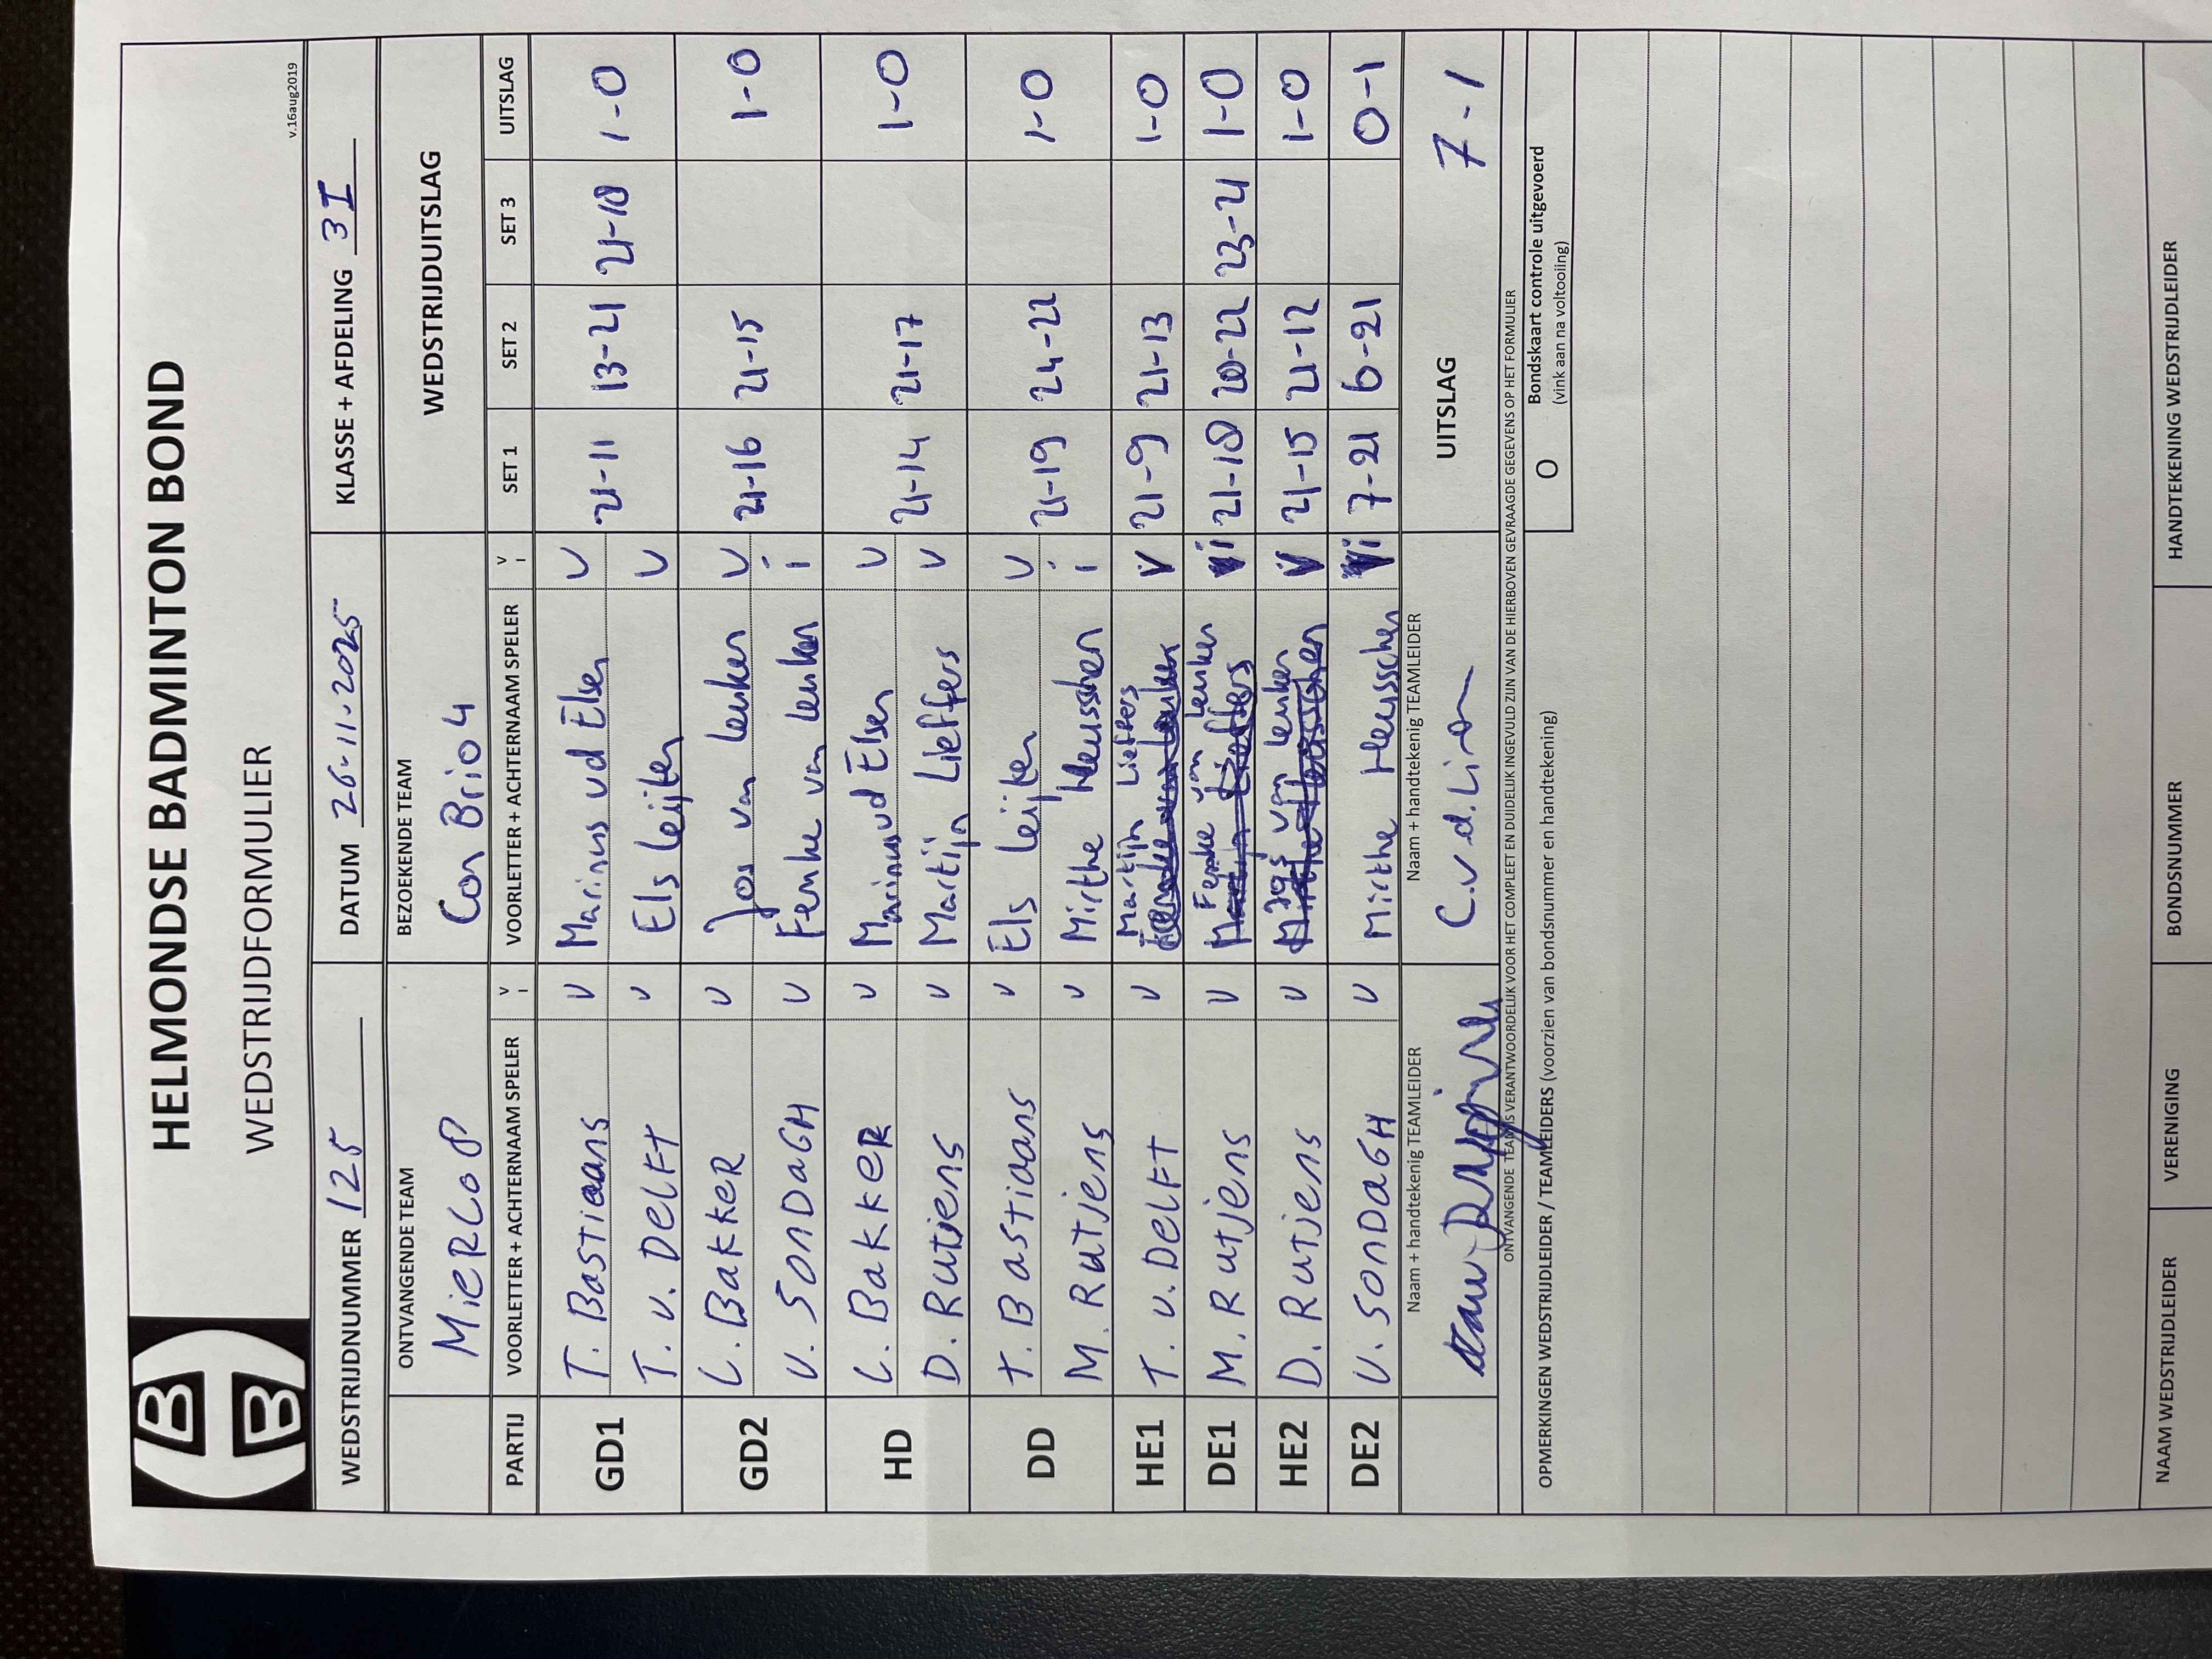 HELMONDSE BADMINTON BOND
WEDSTRIJDFORMULIER
v.16aug2019
WEDSTRIJDNUMMER 125 DATUM 26-11-2025 KLASSE + AFDELING 3I
ONTVANGENDE TEAM BEZOEKENDE TEAM WEDSTRIJDUITSLAG
MIERLO P Con Brio 4
PARTIJ VOORLETTER + ACHTERNAAM SPELER V I VOORLETTER + ACHTERNAAM SPELER V I SET 1 SET 2 SET 3 UITSLAG
GD1 T. Bastiaans V Marinus vd Elsen V 21-11 13-21 21-18 1-0
T. v. Delft V Els Leijten V
GD2 C. Bakker V Jos van Leuken V 21-16 21-15 1-0
V. Sondagh V Femke van Leuken i
HD C. Bakker V Marinus vd Elsen V 21-14 21-17 1-0
D. Rutjens V Martijn Lieffers V
DD T. Bastiaans V Els Leijten V 21-19 24-22 1-0
M. Rutjens V Mirthe Heusschen i
HE1 T. v. Delft V Martijn Lieffers V 21-9 21-13 1-0
DE1 M. Rutjens V Femke van Leuken i 21-18 20-22 23-21 1-0
HE2 D. Rutjens V Jos van Leuken V 21-15 21-12 1-0
DE2 V. Sondagh V Mirthe Heusschen i 7-21 6-21 0-1
Naam + handtekenig TEAMLEIDER Naam + handtekenig TEAMLEIDER UITSLAG 7-1
C.v.d.Lie
ONTVANGENDE TEAM IS VERANTWOORDELIJK VOOR HET COMPLEET EN DUIDELIJK INGEVULD ZIJN VAN DE HIERBOVEN GEVRAAGDE GEGEVENS OP HET FORMULIER
OPMERKINGEN WEDSTRIJDLEIDER / TEAMLEIDERS (voorzien van bondsnummer en handtekening) O Bondskaart controle uitgevoerd
(vink aan na voltooiing)
NAAM WEDSTRIJDLEIDER VERENIGING BONDSNUMMER HANDTEKENING WEDSTRIJDLEIDER